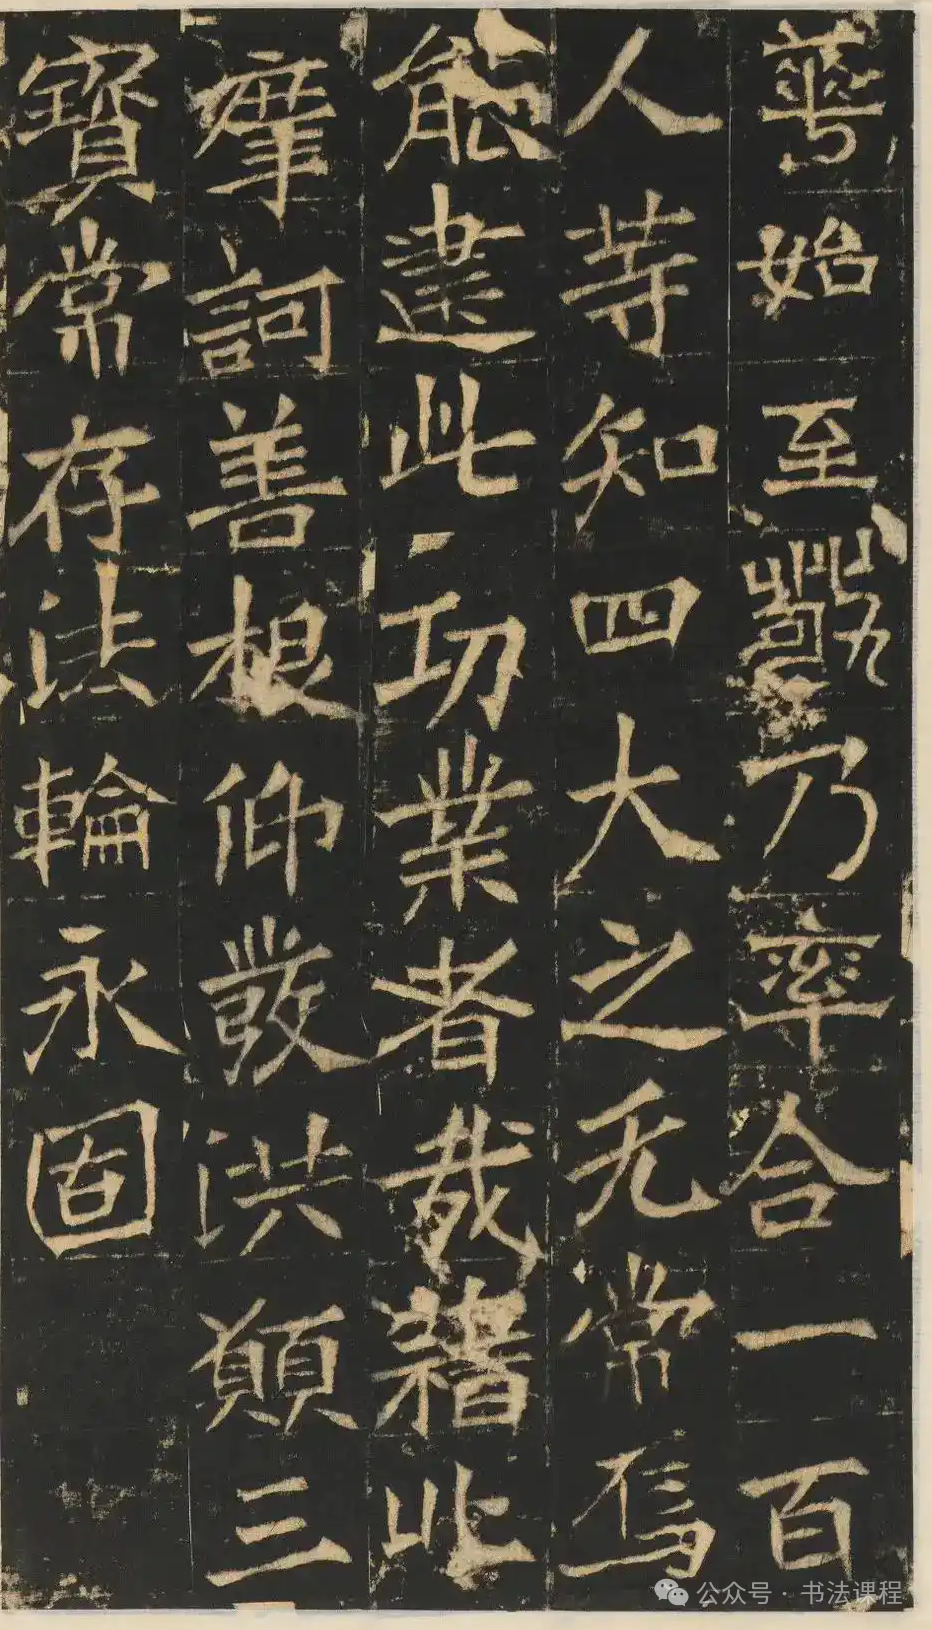 華始至乃率合一百
人等知四大之无常焉
能建此功業者哉藉此
摩訶善根仰發洪願三
寶常存法輪永固
公众号 · 书法课程